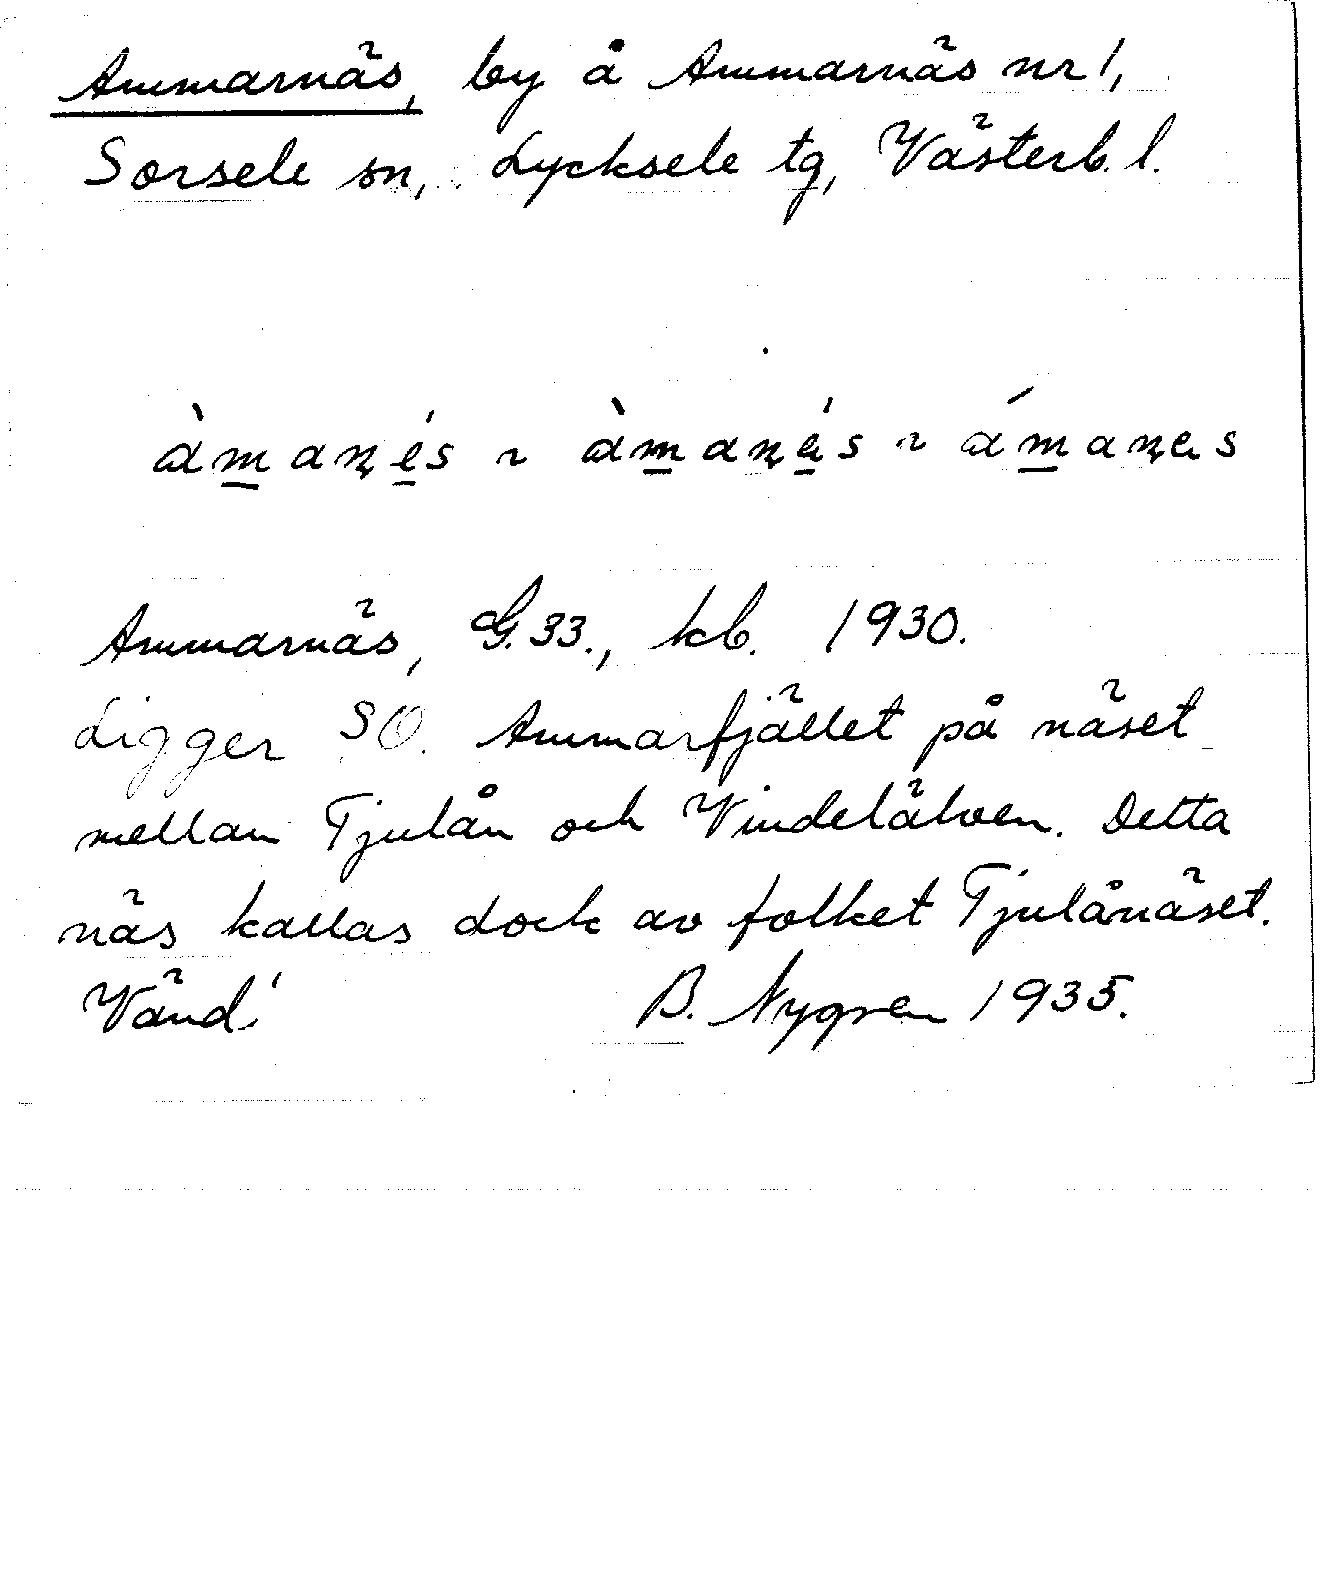 Ammarnäs, by å Ammarnäs nr 1,
Sorsele sn, Lycksele tg, Västerb. l.
àmaṇés ~ àmaṇǽs ~ ámaṇæs
Ammarnäs, G. 33., kb. 1930.
Ligger SO. Ammarfjället på näset
mellan Tjulån och Vindelälven. Detta
näs kallas dock av folket Tjulånäset.
Vänd! B. Nygren 1935.